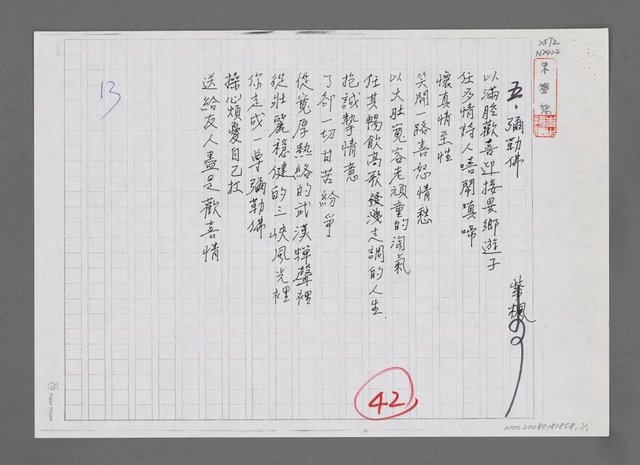 五、彌勒佛
華楓
以滿腔歡喜迎接異鄉遊子
任多情詩人嘻鬧嗔啼
懷真情至性
笑開一路喜怒情愁
以大肚寬容老頑童的淘氣
任其暢飲高歌發洩走調的人生.
抱誠摯情意
了卻一切甘苦紛爭
從寬厚熱絡的武漢蟬聲裡
從壯麗穩健的三峽風光裡
你走成一尊彌勒佛
操心煩憂自己扛
送給友人盡是歡喜情
13
42
2512
N2422
NMTL20080181858
Paper House